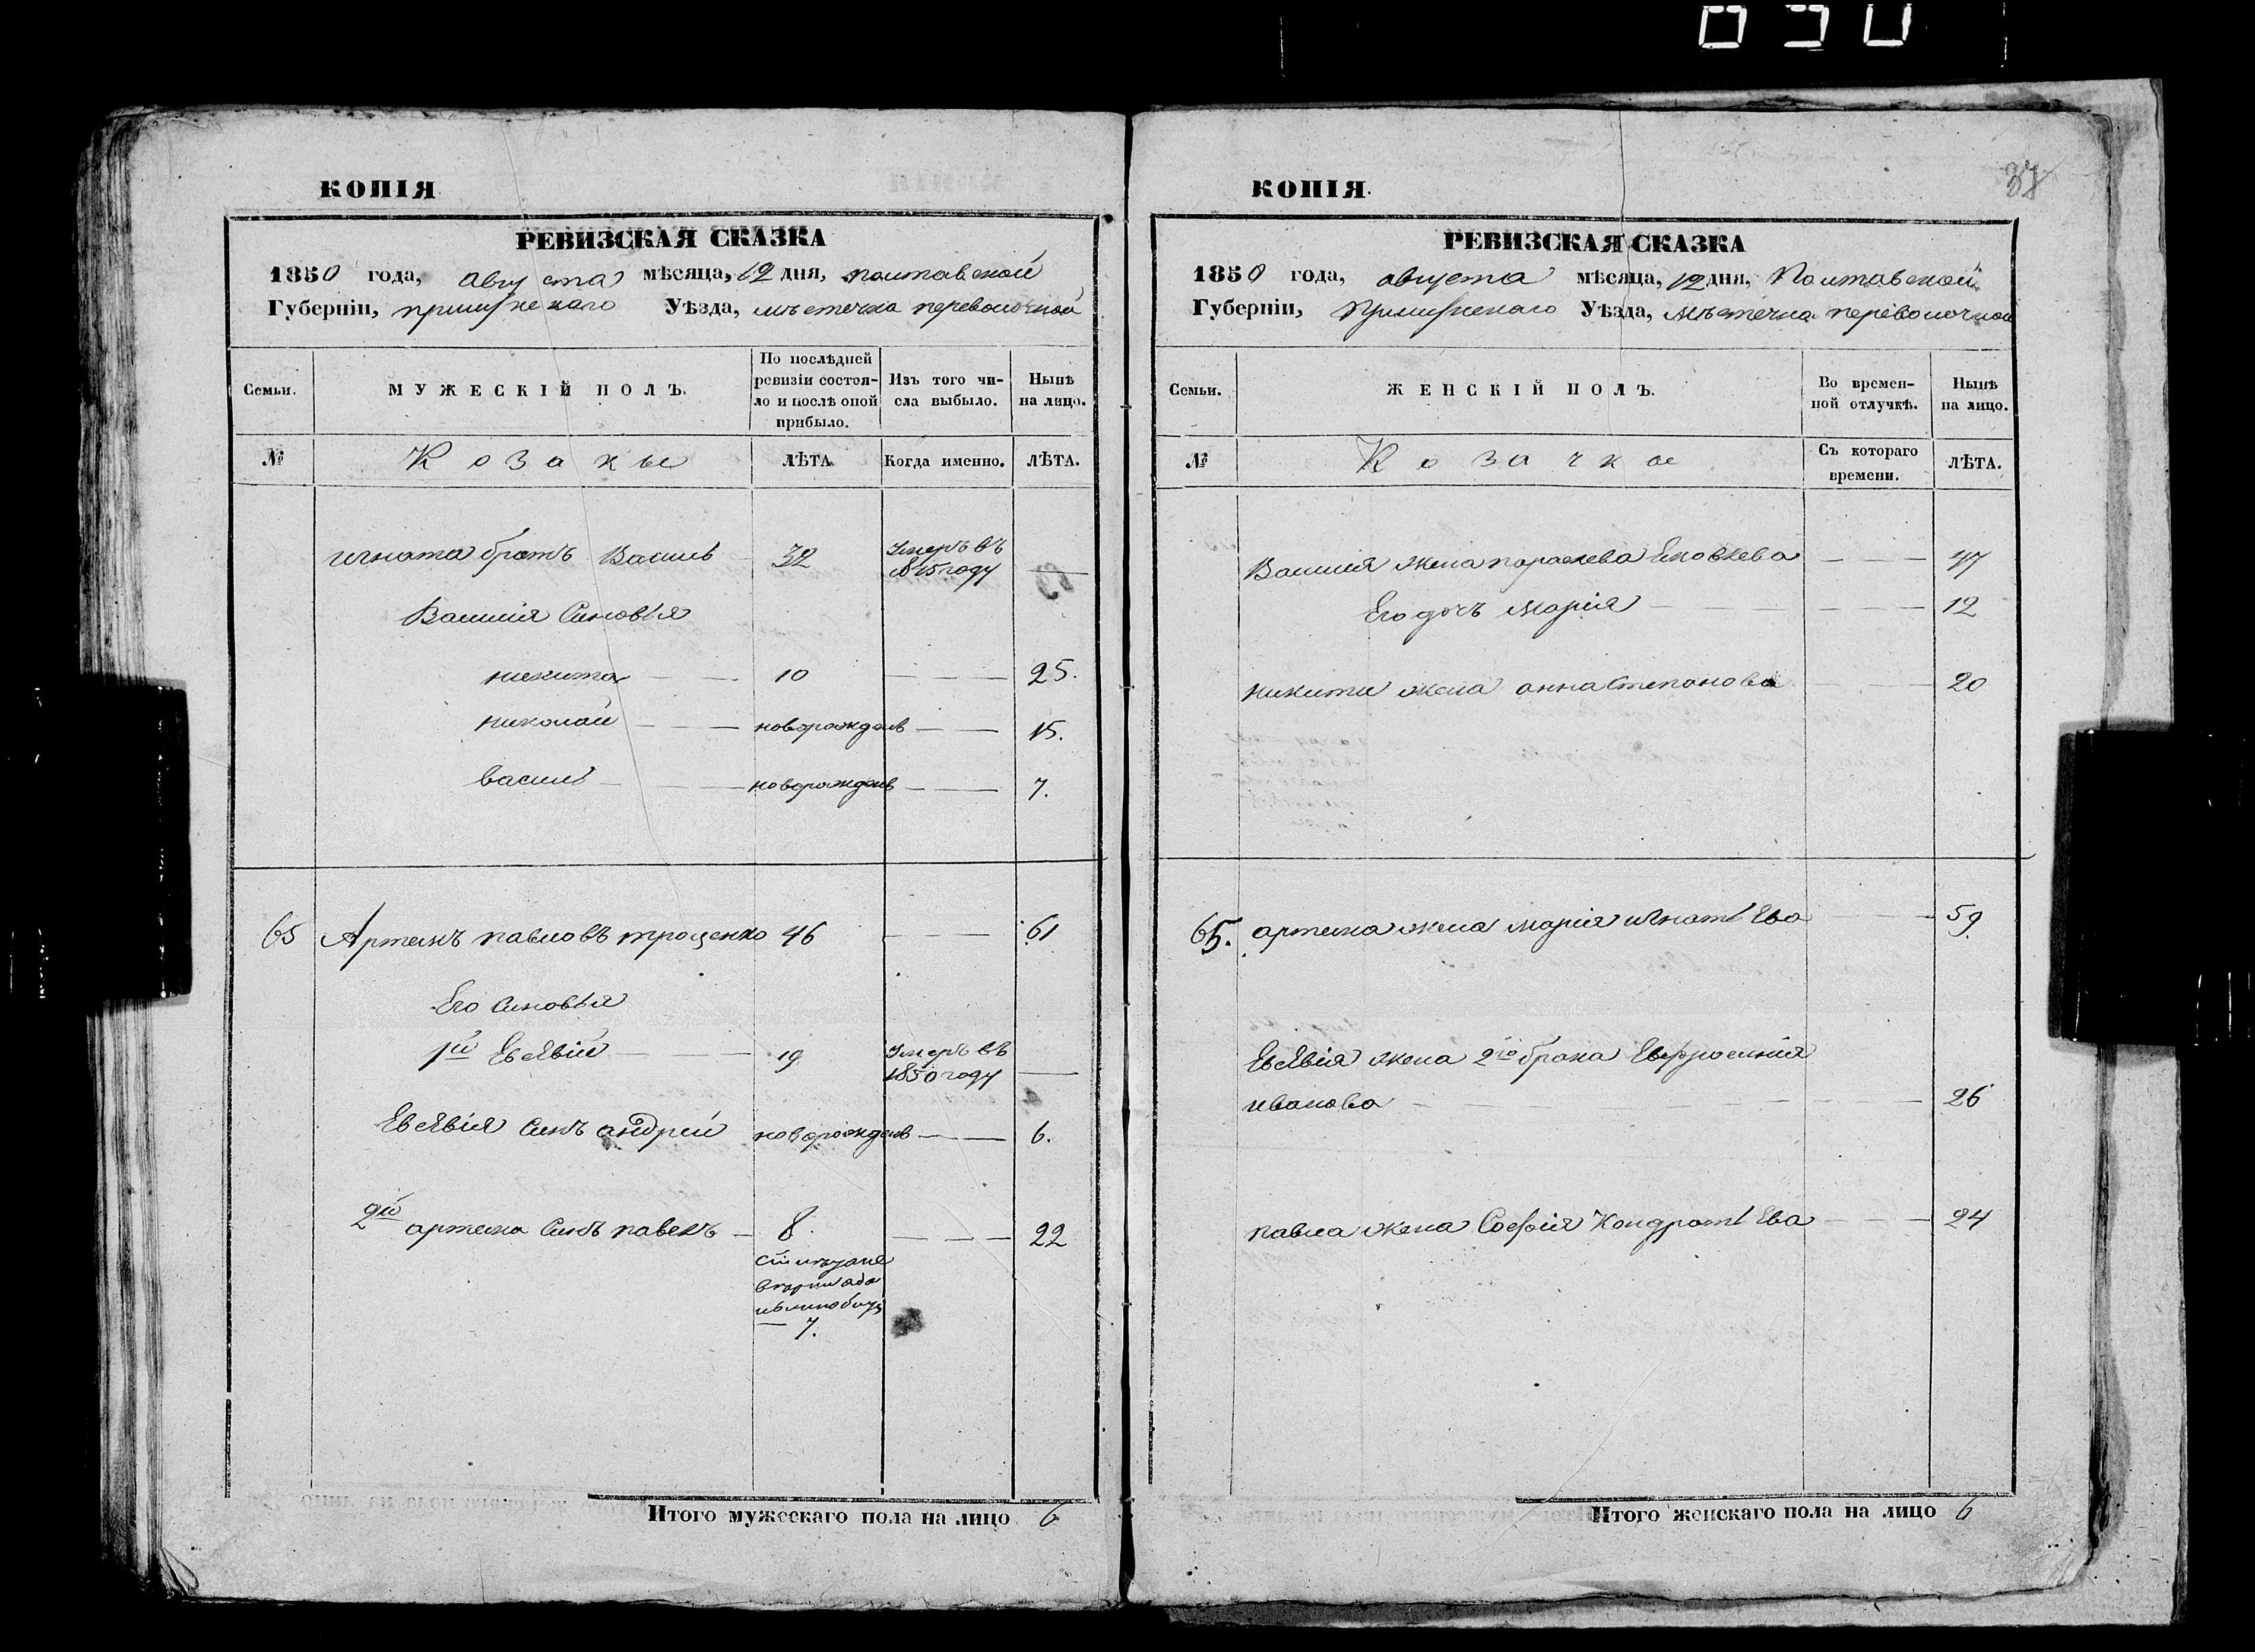 37
КОПІЯ
РЕВИЗСКАЯ СКАЗКА
1850 года, августа мѣсяца, 12 дня, полтавской
Губерніи, прилуцкаго Уѣзда, мѣстечка переволочной
Семьи.
МУЖЕСКІЙ ПОЛЪ.
По послѣдней ревизіи состоя-
ло и послѣ оной прибыло.
Изъ того чи-
сла выбыло.
Нынѣ
на лицо.
№
Козаки
ЛѢТА
Когда именно.
ЛѢТА.
игната братъ Василь 32 Умеръ въ
1845 году —
Василія Синовья
никита — — 10 — — — 25.
николай — — новорожденъ — — 15.
василь — — новорожденъ — — 7.
65 Артемъ павловъ троценко 46 — — — 61
Его Синовья
1й Евсѣвій — — 19 Умеръ въ
1850 году —
Евсѣвія Синъ андрей новорожденъ — — 6.
2й
артема Синъ павелъ — 8. — — — 22
7.
Итого мужескаго пола на лицо 6
КОПІЯ.
РЕВИЗСКАЯ СКАЗКА
1850 года, августа мѣсяца, 12 дня, Полтавской
Губерніи, Прилуцкаго Уѣзда, Мѣстечка переволочной
Семьи.
ЖЕНСКІЙ ПОЛЪ.
Во времен-
ной отлучкѣ.
Нынѣ
на лицо.
№
Козачки
Съ котораго
времени.
ЛѢТА.
Василия жена параскева Яковлева — — — 47
Его дочь Марія — — — 12
никити жена анна Степанова — — — 20
65. артема жена марія игнатьева — — — 59.
Евсѣвія жена 2го брака Евфросинія
иванова — — — 26
павла жена Софія Кондратьева — — — 24
Итого женскаго пола на лицо 6